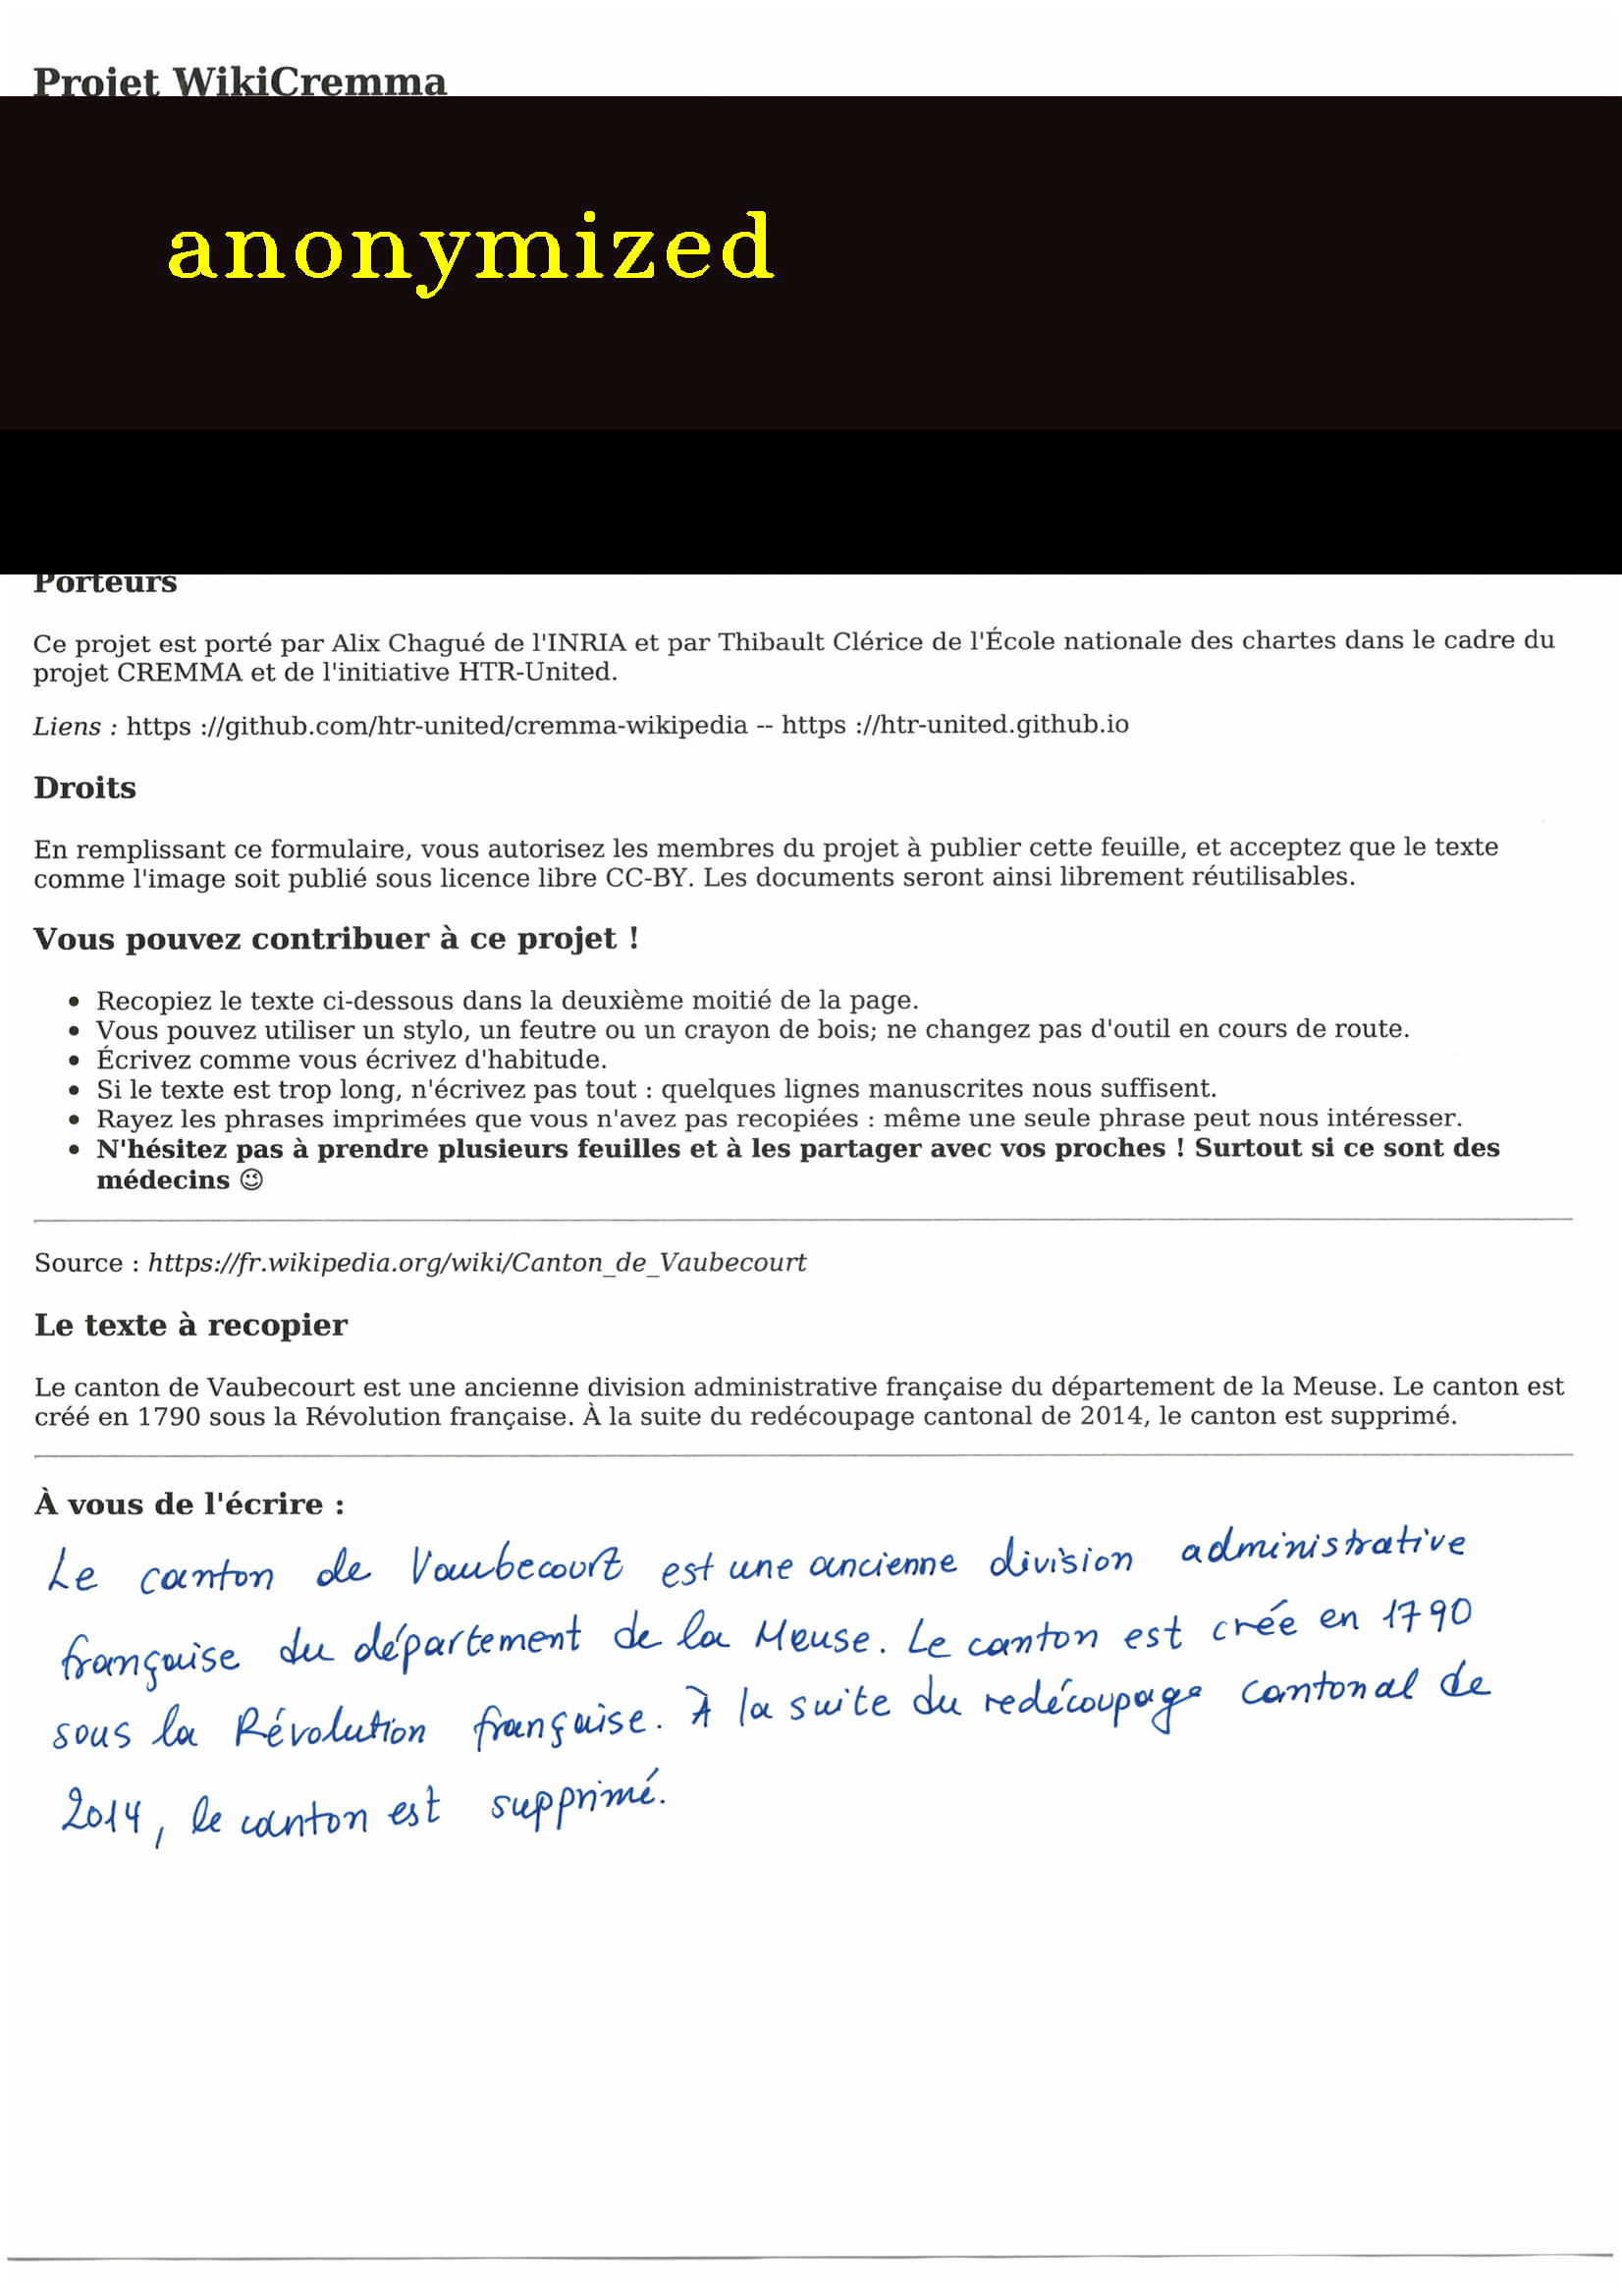 Projet WikiCremma
anonymized
Porteurs
Ce projet est porté par Alix Chagué de l'INRIA et par Thibault Clérice de l'École nationale des chartes dans le cadre du
projet CREMMA et de l'initiative HTR-United.
Liens : https ://github.com/htr-united/cremma-wikipedia -- https ://htr-united.github.io
Droits
En remplissant ce formulaire, vous autorisez les membres du projet à publier cette feuille, et acceptez que le texte
comme l'image soit publié sous licence libre CC-BY. Les documents seront ainsi librement réutilisables.
Vous pouvez contribuer à ce projet !
• Recopiez le texte ci-dessous dans la deuxième moitié de la page.
• Vous pouvez utiliser un stylo, un feutre ou un crayon de bois; ne changez pas d'outil en cours de route.
• Écrivez comme vous écrivez d'habitude.
• Si le texte est trop long, n'écrivez pas tout : quelques lignes manuscrites nous suffisent.
• Rayez les phrases imprimées que vous n'avez pas recopiées : même une seule phrase peut nous intéresser.
• N'hésitez pas à prendre plusieurs feuilles et à les partager avec vos proches ! Surtout si ce sont des
médecins 😉
Source : https://fr.wikipedia.org/wiki/Canton_de_Vaubecourt
Le texte à recopier
Le canton de Vaubecourt est une ancienne division administrative française du département de la Meuse. Le canton est
créé en 1790 sous la Révolution française. À la suite du redécoupage cantonal de 2014, le canton est supprimé.
À vous de l'écrire :
Le canton de Vaubecourt est une ancienne division administrative
française du département de la Meuse. Le canton est créé en 1790
sous la Révolution française. À la suite du redécoupage cantonal de
2014, le canton est supprimé.